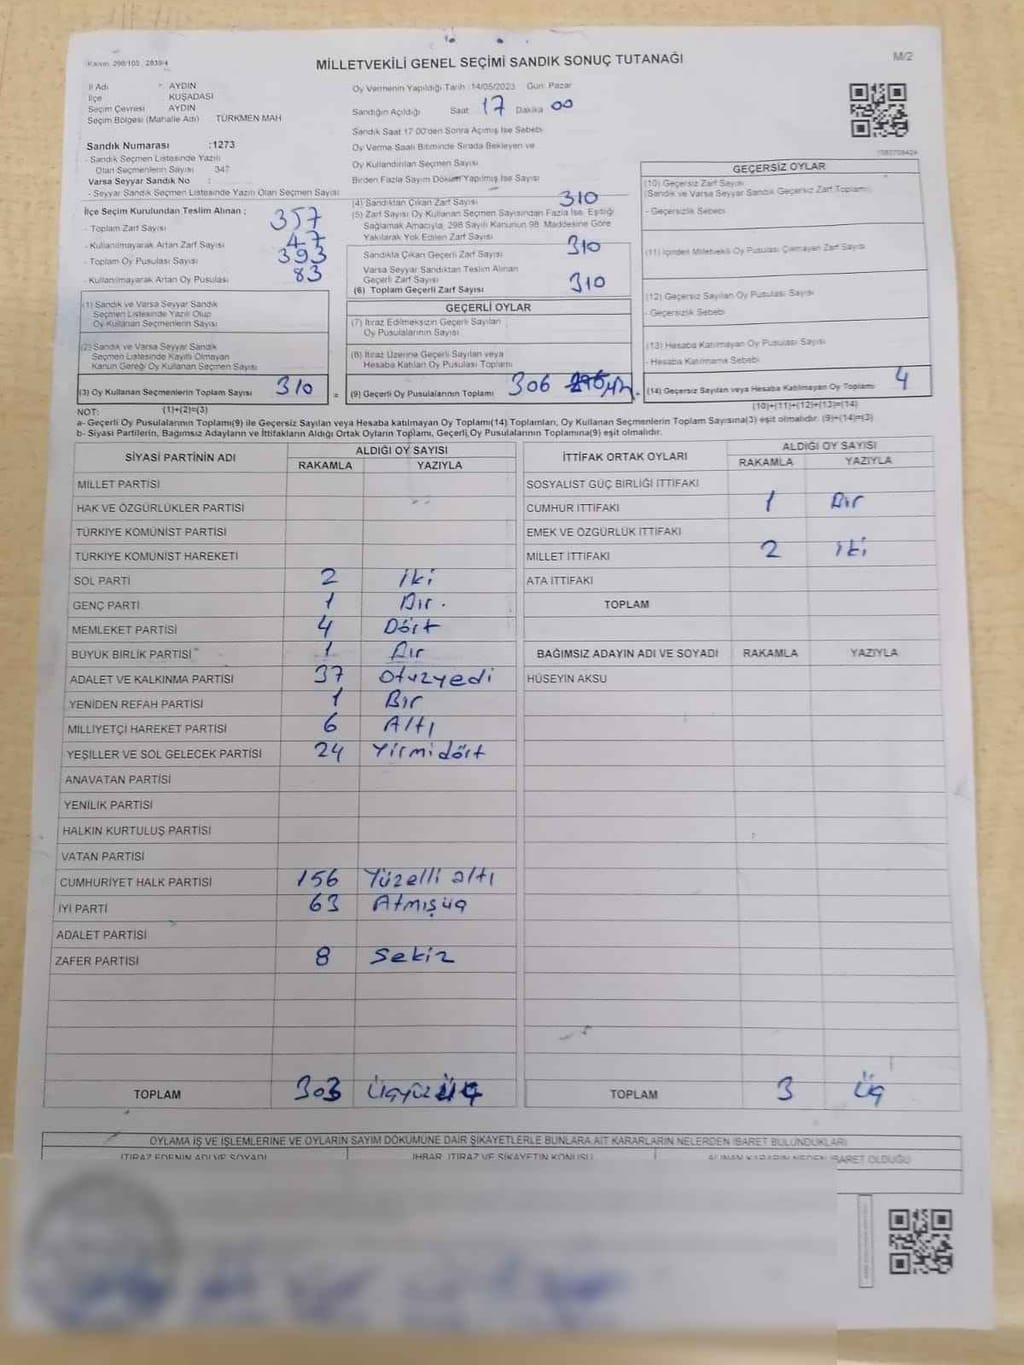 MİLLETVEKİLİ GENEL SEÇİMİ SANDIK SONUÇ TUTANAĞI
M/2
İl Adı AYDIN
İlçe KUŞADASI
Seçim Çevresi AYDIN
Seçim Bölgesi (Mahalle Adı) TÜRKMEN MAH
Sandık Numarası :1273
- Sandık Seçmen Listesinde Yazılı
Olan Seçmenlerin Sayısı 347
Varsa Seyyar Sandık No :
- Seyyar Sandık Seçmen Listesinde Yazılı Olan Seçmen Sayısı
Oy Vermenin Yapıldığı Tarih :14/05/2023 Gün: Pazar
Sandığın Açıldığı Saat 17 Dakika 00
Sandık Saat 17:00'den Sonra Açılmış İse Sebebi
Oy Verme Saati Bitiminde Sırada Bekleyen ve
Oy Kullandırılan Seçmen Sayısı
Birden Fazla Sayım Döküm Yapılmış İse Sayısı
İlçe Seçim Kurulundan Teslim Alınan ;
- Toplam Zarf Sayısı 357
- Kullanılmayarak Artan Zarf Sayısı 47
- Toplam Oy Pusulası Sayısı 393
- Kullanılmayarak Artan Oy Pusulası 83
(1) Sandık ve Varsa Seyyar Sandık
Seçmen Listesinde Yazılı Olup
Oy Kullanan Seçmenlerin Sayısı
(2) Sandık ve Varsa Seyyar Sandık
Seçmen Listesinde Kayıtlı Olmayan
Kanun Gereği Oy Kullanan Seçmen Sayısı
(3) Oy Kullanan Seçmenlerin Toplam Sayısı 310
(1)+(2)=(3)
(4) Sandıktan Çıkan Zarf Sayısı 310
(5) Zarf Sayısı Oy Kullanan Seçmen Sayısından Fazla İse, Eşitliği
Sağlamak Amacıyla, 298 Sayılı Kanunun 98. Maddesine Göre
Yakılarak Yok Edilen Zarf Sayısı
Sandıkta Çıkan Geçerli Zarf Sayısı 310
Varsa Seyyar Sandıktan Teslim Alınan
Geçerli Zarf Sayısı
(6) Toplam Geçerli Zarf Sayısı 310
GEÇERLİ OYLAR
(7) İtiraz Edilmeksizin Geçerli Sayılan
Oy Pusulalarının Sayısı
(8) İtiraz Üzerine Geçerli Sayılan veya
Hesaba Katılan Oy Pusulası Toplamı
= (9) Geçerli Oy Pusulalarının Toplamı 306
GEÇERSİZ OYLAR
(10) Geçersiz Zarf Sayısı
(Sandık ve Varsa Seyyar Sandık Geçersiz Zarf Toplamı)
- Geçersizlik Sebebi
(11) İçinden Milletvekili Oy Pusulası Çıkmayan Zarf Sayısı
(12) Geçersiz Sayılan Oy Pusulası Sayısı
- Geçersizlik Sebebi
(13) Hesaba Katılmayan Oy Pusulası Sayısı
- Hesaba Katılmama Sebebi
(14) Geçersiz Sayılan veya Hesaba Katılmayan Oy Toplamı 4
(10)+(11)+(12)+(13)=(14)
NOT:
a- Geçerli Oy Pusulalarının Toplamı(9) ile Geçersiz Sayılan veya Hesaba katılmayan Oy Toplamı(14) Toplamları, Oy Kullanan Seçmenlerin Toplam Sayısına(3) eşit olmalıdır. (9)+(14)=(3)
b- Siyasi Partilerin, Bağımsız Adayların ve İttifakların Aldığı Ortak Oyların Toplamı, Geçerli Oy Pusulalarının Toplamına(9) eşit olmalıdır.
SİYASİ PARTİNİN ADI
ALDIĞI OY SAYISI
RAKAMLA YAZIYLA
MİLLET PARTİSİ
HAK VE ÖZGÜRLÜKLER PARTİSİ
TÜRKİYE KOMÜNİST PARTİSİ
TÜRKİYE KOMÜNİST HAREKETİ
SOL PARTİ 2 iki
GENÇ PARTİ 1 Bir.
MEMLEKET PARTİSİ 4 Dört
BÜYÜK BİRLİK PARTİSİ 1 Bir
ADALET VE KALKINMA PARTİSİ 37 otuzyedi
YENİDEN REFAH PARTİSİ 1 Bir
MİLLİYETÇİ HAREKET PARTİSİ 6 Altı
YEŞİLLER VE SOL GELECEK PARTİSİ 24 Yirmidört
ANAVATAN PARTİSİ
YENİLİK PARTİSİ
HALKIN KURTULUŞ PARTİSİ
VATAN PARTİSİ
CUMHURİYET HALK PARTİSİ 156 Yüzelli altı
İYİ PARTİ 63 Atmışüç
ADALET PARTİSİ
ZAFER PARTİSİ 8 Sekiz
TOPLAM 303
İTTİFAK ORTAK OYLARI
ALDIĞI OY SAYISI
RAKAMLA YAZIYLA
SOSYALİST GÜÇ BİRLİĞİ İTTİFAKI
CUMHUR İTTİFAKI 1 Bir
EMEK VE ÖZGÜRLÜK İTTİFAKI
MİLLET İTTİFAKI 2 iki
ATA İTTİFAKI
TOPLAM
BAĞIMSIZ ADAYIN ADI VE SOYADI RAKAMLA YAZIYLA
HÜSEYİN AKSU
TOPLAM 3 Üç
OYLAMA İŞ VE İŞLEMLERİNE VE OYLARIN SAYIM DÖKÜMÜNE DAİR ŞİKAYETLERLE BUNLARA AİT KARARLARIN NELERDEN İBARET BULUNDUKLARI
İTİRAZ EDENİN ADI VE SOYADI İHBAR, İTİRAZ VE ŞİKAYETİN KONUSU ALINAN KARARIN NEDEN İBARET OLDUĞU